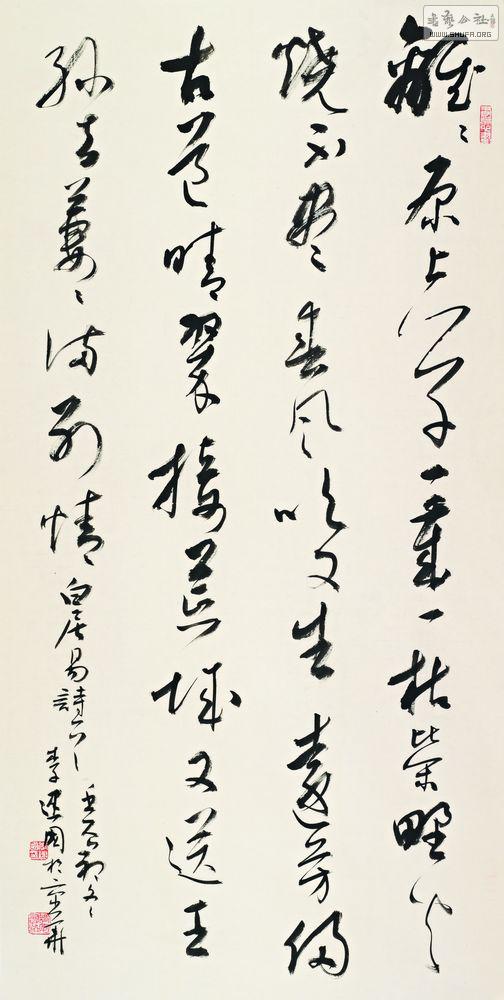 離〻原上草一歲一枯榮野火
燒不盡〻春風吹又生遠芳侵
古道晴翠接荒城又送王
孫去萋〻滿別情
白居易詩一首
李建國於京華
書藝公社
WWW.SHUFA.ORG